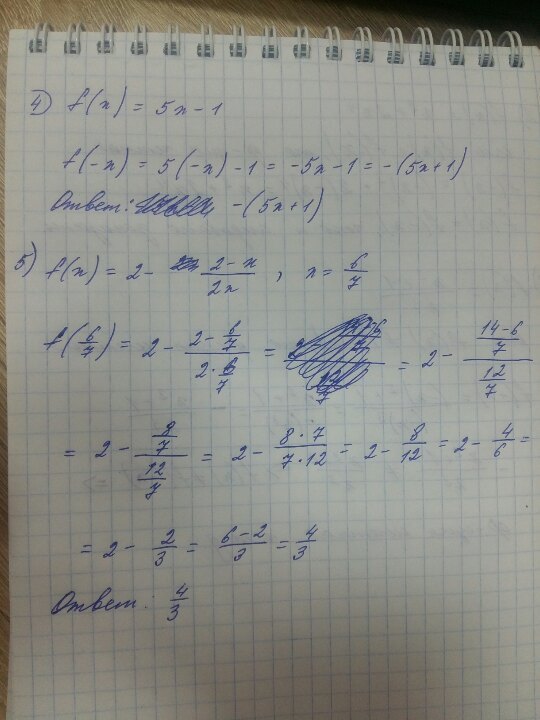 4) f(x) = 5x - 1
f(-x) = 5(-x) - 1 = -5x - 1 = -(5x+1)
Ответ: -(5x+1)
5) f(x) = 2 - \frac{2-x}{2x} , x = \frac{6}{7}
f(\frac{6}{7}) = 2 - \frac{2-\frac{6}{7}}{2·\frac{6}{7}} = = 2 - \frac{\frac{14-6}{7}}{\frac{12}{7}}
= 2 - \frac{\frac{8}{7}}{\frac{12}{7}} = 2 - \frac{8·7}{7·12} = 2 - \frac{8}{12} = 2 - \frac{4}{6} =
= 2 - \frac{2}{3} = \frac{6-2}{3} = \frac{4}{3}
Ответ: \frac{4}{3}